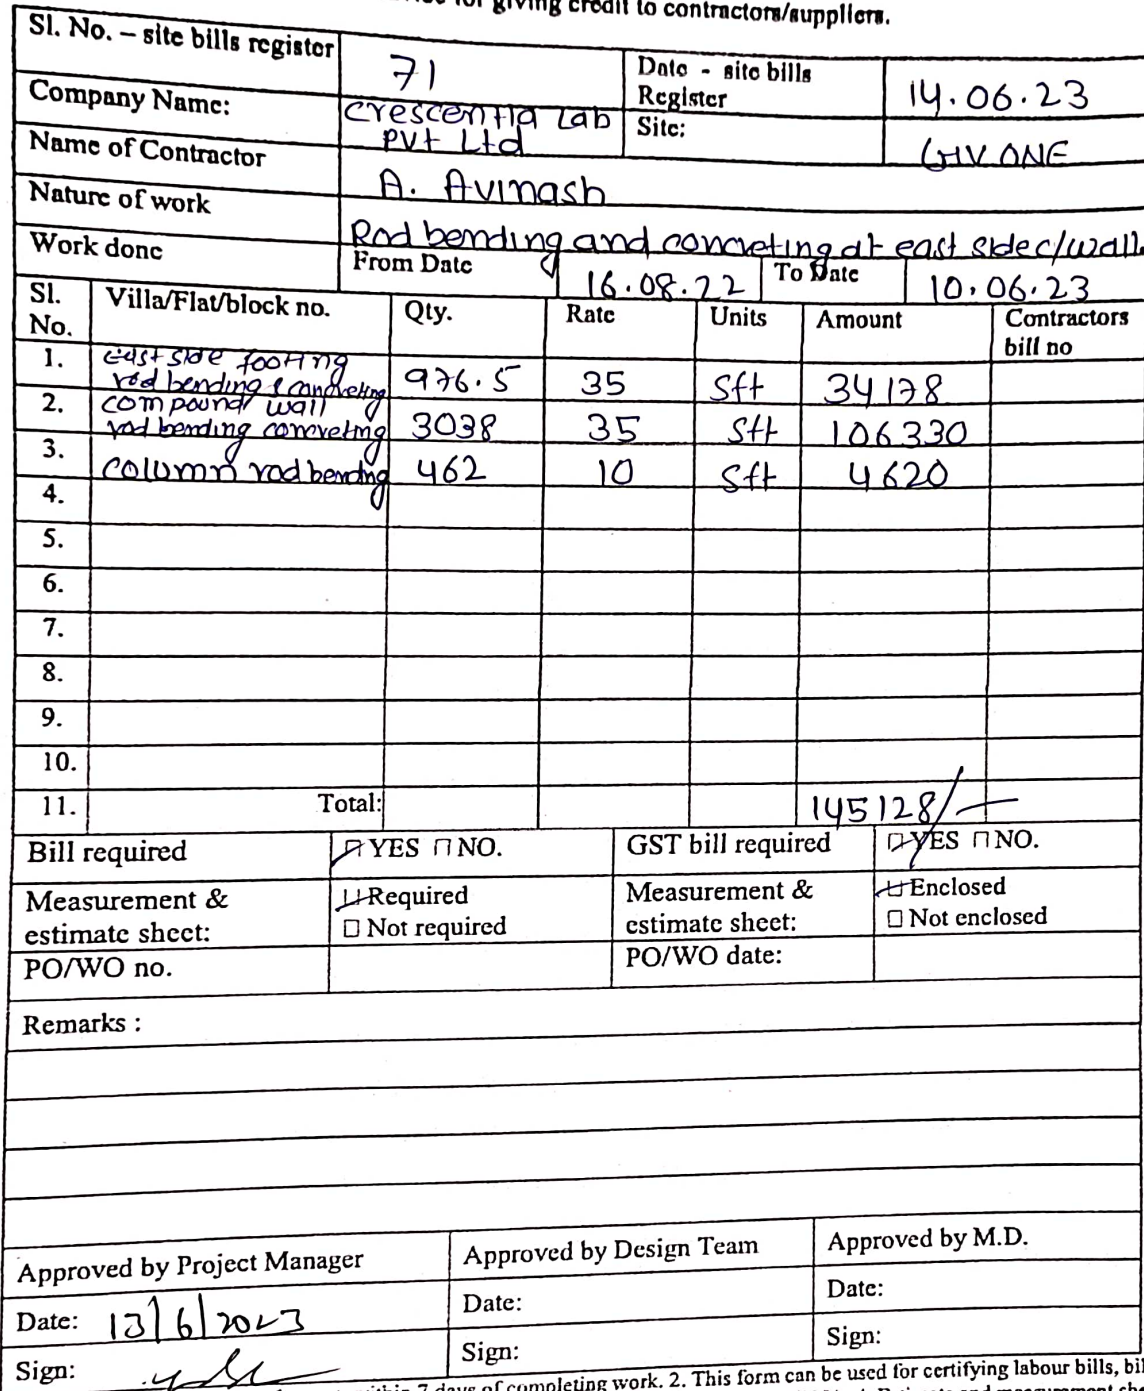 for giving credit to contractors/suppliers.
Sl. No. – site bills register 71 Date - site bills Register 14.06.23
Company Name: Crescentia Lab Pvt Ltd Site: GHV ONE
Name of Contractor A. Avinash
Nature of work Rod bending and concreting at east side c/wall
Work done From Date 16.08.22 To Date 10.06.23
Sl. No. Villa/Flat/block no. Qty. Rate Units Amount Contractors bill no
1. east side footing rod bending & concreting 976.5 35 Sft 34178
2. compound wall rod bending concreting 3038 35 Sft 106330
3. column rod bending 462 10 Sft 4620
4.
5.
6.
7.
8.
9.
10.
11. Total: 145128/-
Bill required YES NO. GST bill required YES NO.
Measurement & estimate sheet: Required Not required Measurement & estimate sheet: Enclosed Not enclosed
PO/WO no. PO/WO date:
Remarks :
Approved by Project Manager Approved by Design Team Approved by M.D.
Date: 13/6/2023 Date: Date:
Sign: Sign: Sign:
7 days of completing work. 2. This form can be used for certifying labour bills,